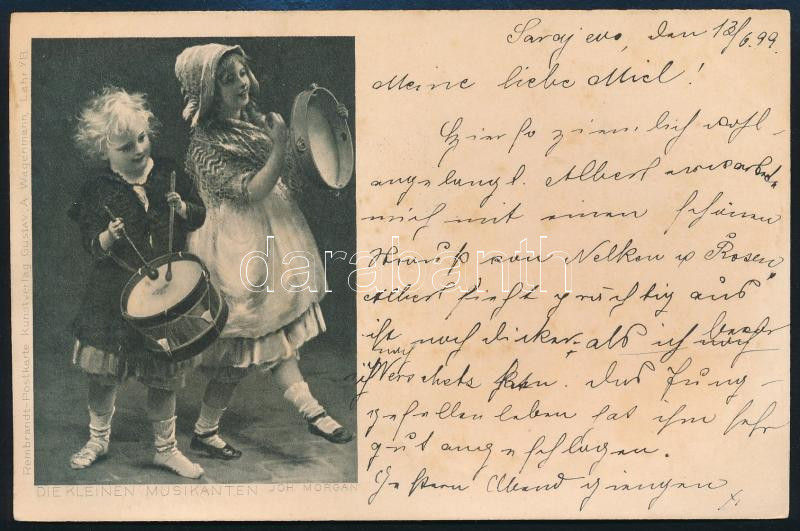 Sarajevo, den 13/6.99.
Meine liebe Miel!
Hier so ziemlich wohl-
angelangt. Albert erwartete
mich mit einen schönen
Strauß von Nelken u Rosen,
Albert sieht prächtig aus
ist noch dicker, als ich noch bevor
ich nach Verschetz kam. Das Jung-
gesellenleben hat ihm sehr
gut angeschlagen.
Gestern Abend giengen
Rembrandt-Postkarte Kunstverlag Gustav A. Wagenmann, Lahr i/B.
DIE KLEINEN MUSIKANTEN JOH. MORGAN
darabanth